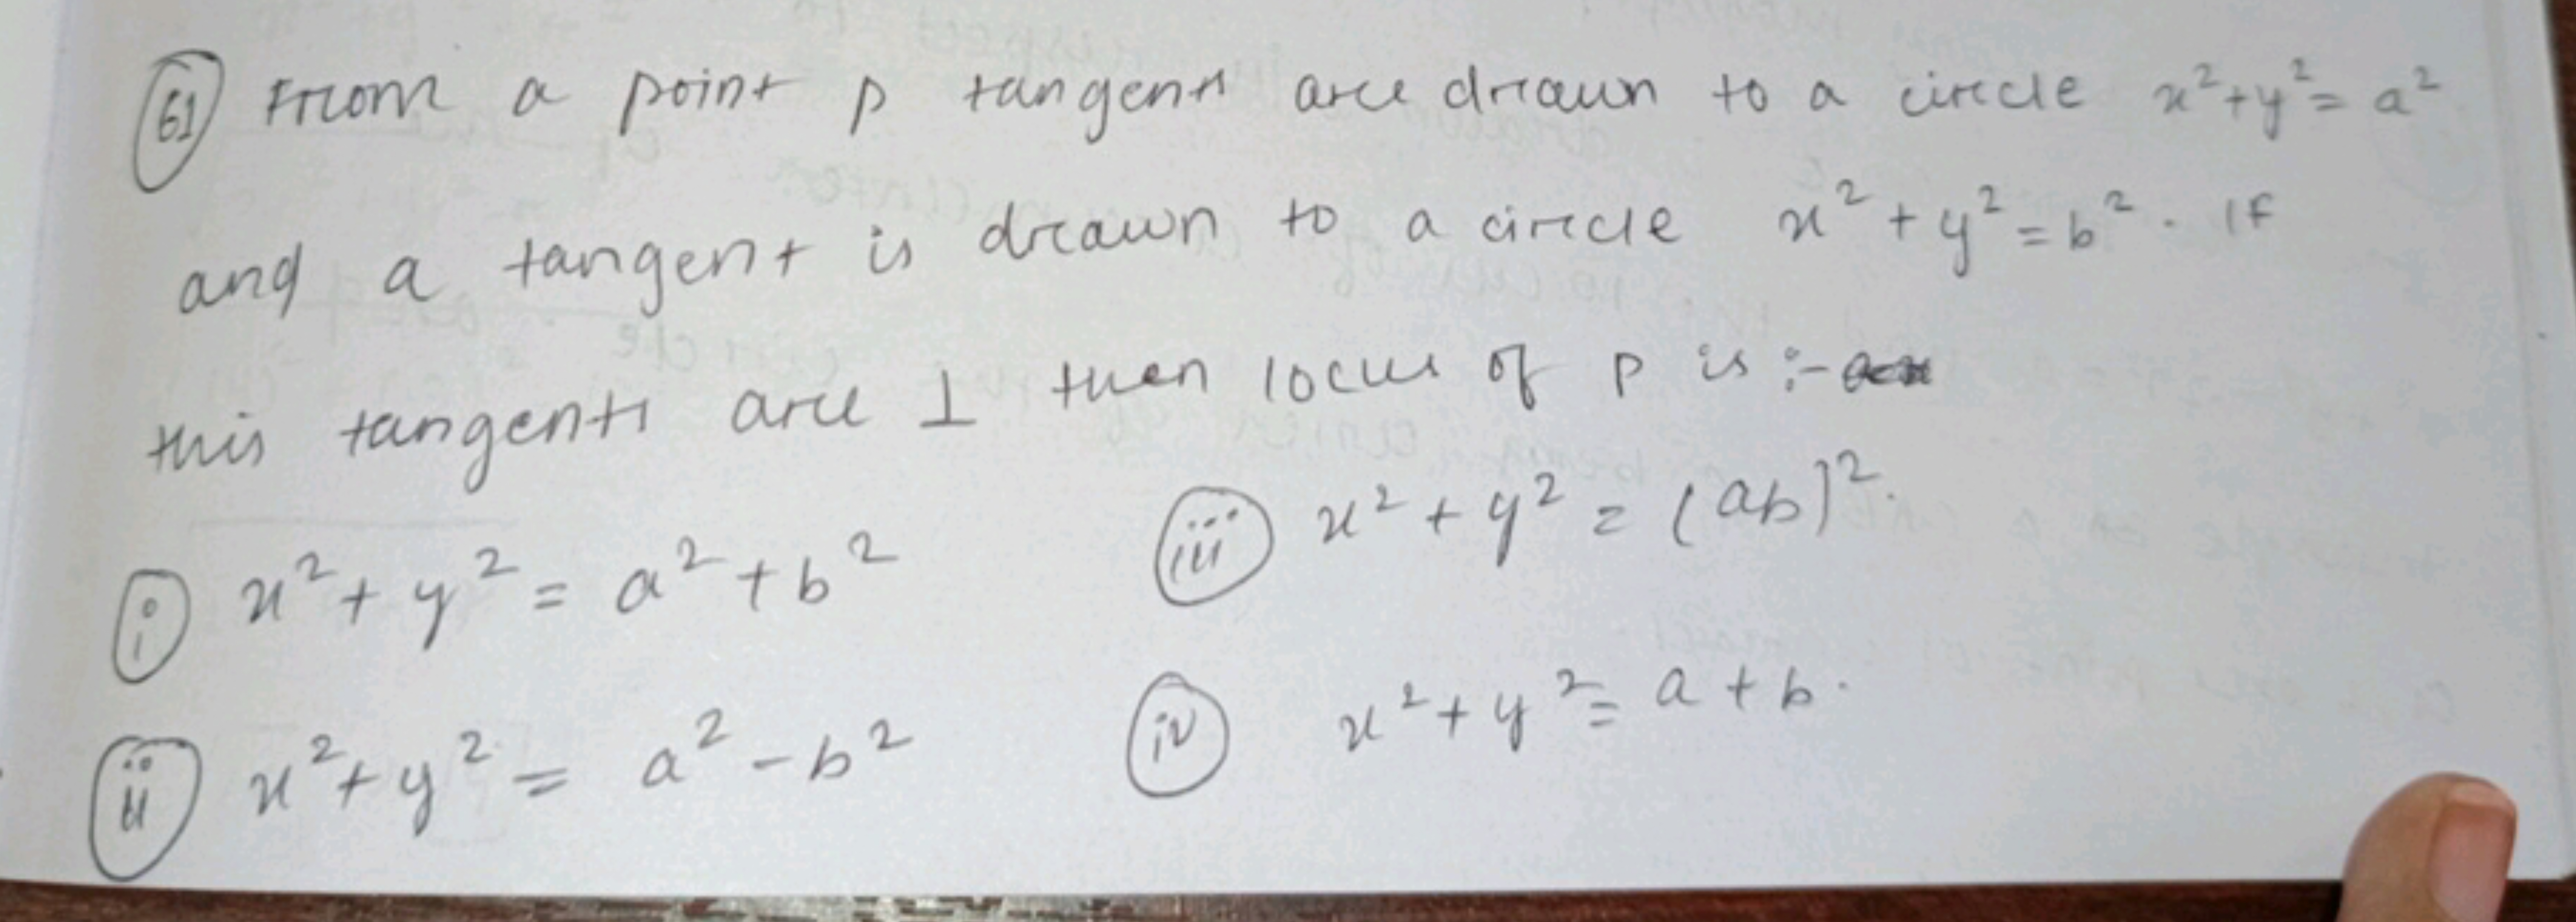 61 From a point p tangents are drawn to a circle x² + y² = a²
and a tangent is drawn to a circle x² + y² = b². If
this tangents are ⊥ then locus of p is :-
i x² + y² = a² + b²
iii x² + y² = (ab)².
ii x² + y² = a² - b²
iv x² + y² = a + b.